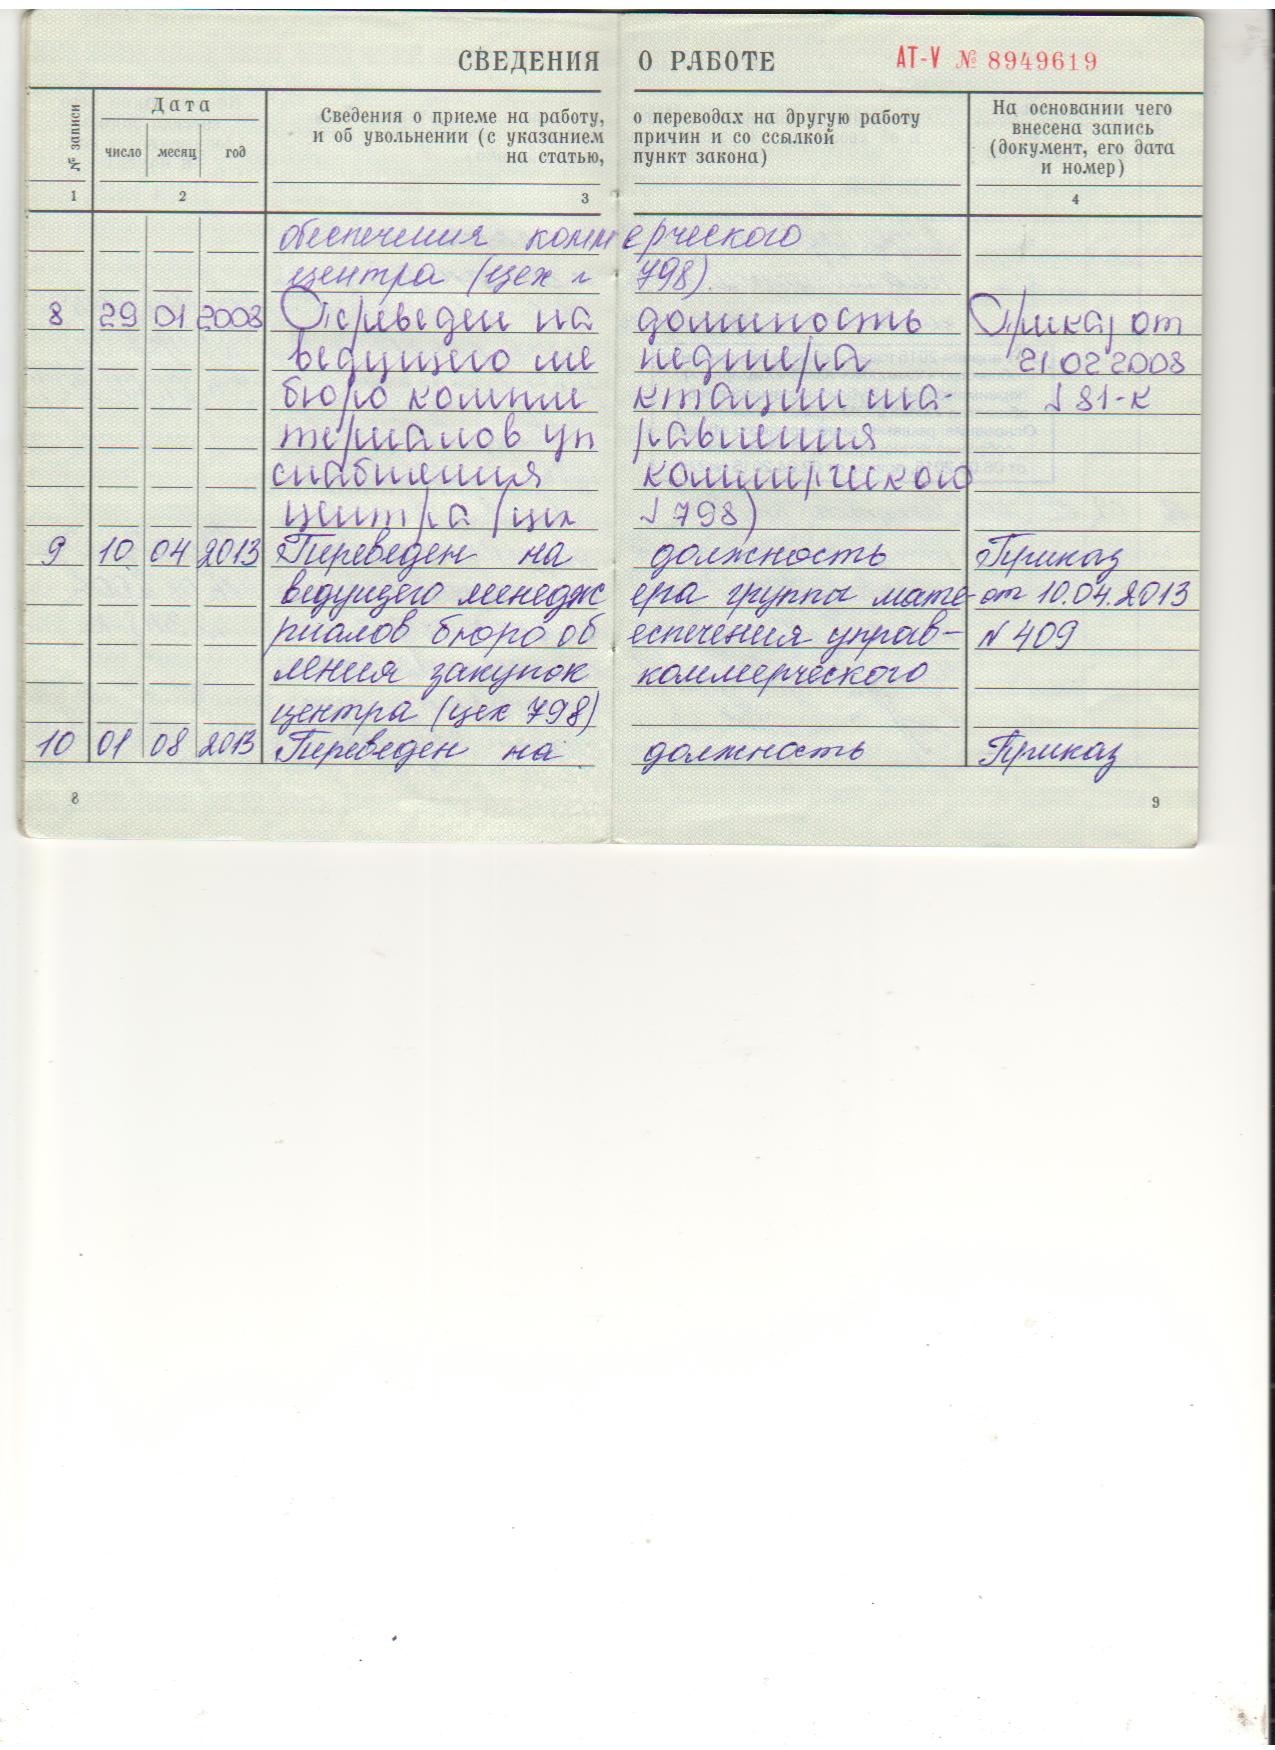 СВЕДЕНИЯ О РАБОТЕ АТ-V № 8949619
№ записи Дата Сведения о приеме на работу, о переводах на другую работу На основании чего
и об увольнении (с указанием причин и со ссылкой внесена запись
число месяц год на статью, пункт закона) (документ, его дата
и номер)
1 2 3 4
обеспечения коммерческого
центра (цех № 798).
8 29 01 2008 Переведен на должность Приказ от
ведущего менеджера 21 02 2008
бюро комплектации ма- № 81-к
териалов управления
снабжения коммерческого
центра (цех № 798)
9 10 04 2013 Переведен на должность Приказ
ведущего менеджера группы мате- от 10.04.2013
риалов бюро обеспечения управ- № 409
ления закупок коммерческого
центра (цех 798)
10 01 08 2013 Переведен на должность Приказ
8 9